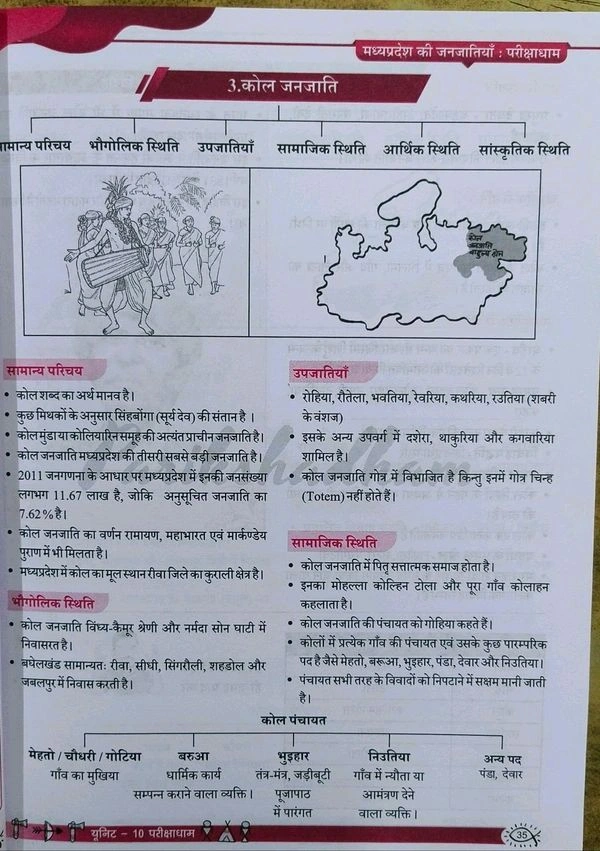 मध्यप्रदेश की जनजातियाँ : परीक्षाधाम
3.कोल जनजाति
ामान्य परिचय भौगोलिक स्थिति उपजातियाँ सामाजिक स्थिति आर्थिक स्थिति सांस्कृतिक स्थिति
कोल
जनजाति
बाहुल्य क्षेत्र
सामान्य परिचय
• कोल शब्द का अर्थ मानव है।
• कुछ मिथकों के अनुसार सिंहबोंगा (सूर्य देव) की संतान है ।
• कोल मुंडा या कोलियारिन समूह की अत्यंत प्राचीन जनजाति है।
• कोल जनजाति मध्यप्रदेश की तीसरी सबसे बड़ी जनजाति है।
• 2011 जनगणना के आधार पर मध्यप्रदेश में इनकी जनसंख्या
लगभग 11.67 लाख है, जोकि अनुसूचित जनजाति का
7.62% है।
• कोल जनजाति का वर्णन रामायण, महाभारत एवं मार्कण्डेय
पुराण में भी मिलता है।
• मध्यप्रदेश में कोल का मूल स्थान रीवा जिले का कुराली क्षेत्र है।
भौगोलिक स्थिति
• कोल जनजाति विंध्य-कैमूर श्रेणी और नर्मदा सोन घाटी में
निवासरत है।
• बघेलखंड सामान्यतः रीवा, सीधी, सिंगरौली, शहडोल और
जबलपुर में निवास करती है।
उपजातियाँ
• रोहिया, रौतेला, भवतिया, रेवरिया, कथरिया, रउतिया (शबरी
के वंशज)
• इसके अन्य उपवर्ग में दशेरा, ठाकुरिया और कगवारिया
शामिल है।
• कोल जनजाति गोत्र में विभाजित है किन्तु इनमें गोत्र चिन्ह
(Totem) नहीं होते हैं।
सामाजिक स्थिति
• कोल जनजाति में पितृ सत्तात्मक समाज होता है।
• इनका मोहल्ला कोल्हिन टोला और पूरा गाँव कोलाहन
कहलाता है।
• कोल जनजाति की पंचायत को गोहिया कहते हैं।
• कोलों में प्रत्येक गाँव की पंचायत एवं उसके कुछ पारम्परिक
पद है जैसे मेहतो, बरूआ, भुइहार, पंडा, देवार और निउतिया।
• पंचायत सभी तरह के विवादों को निपटाने में सक्षम मानी जाती
है।
कोल पंचायत
मेहतो / चौधरी / गोटिया बरुआ भुइहार निउतिया अन्य पद
गाँव का मुखिया धार्मिक कार्य तंत्र-मंत्र, जड़ीबूटी गाँव में न्यौता या पंडा, देवार
सम्पन्न कराने वाला व्यक्ति। पूजापाठ आमंत्रण देने
में पारंगत वाला व्यक्ति।
यूनिट – 10 परीक्षाधाम
35
Parikshadham